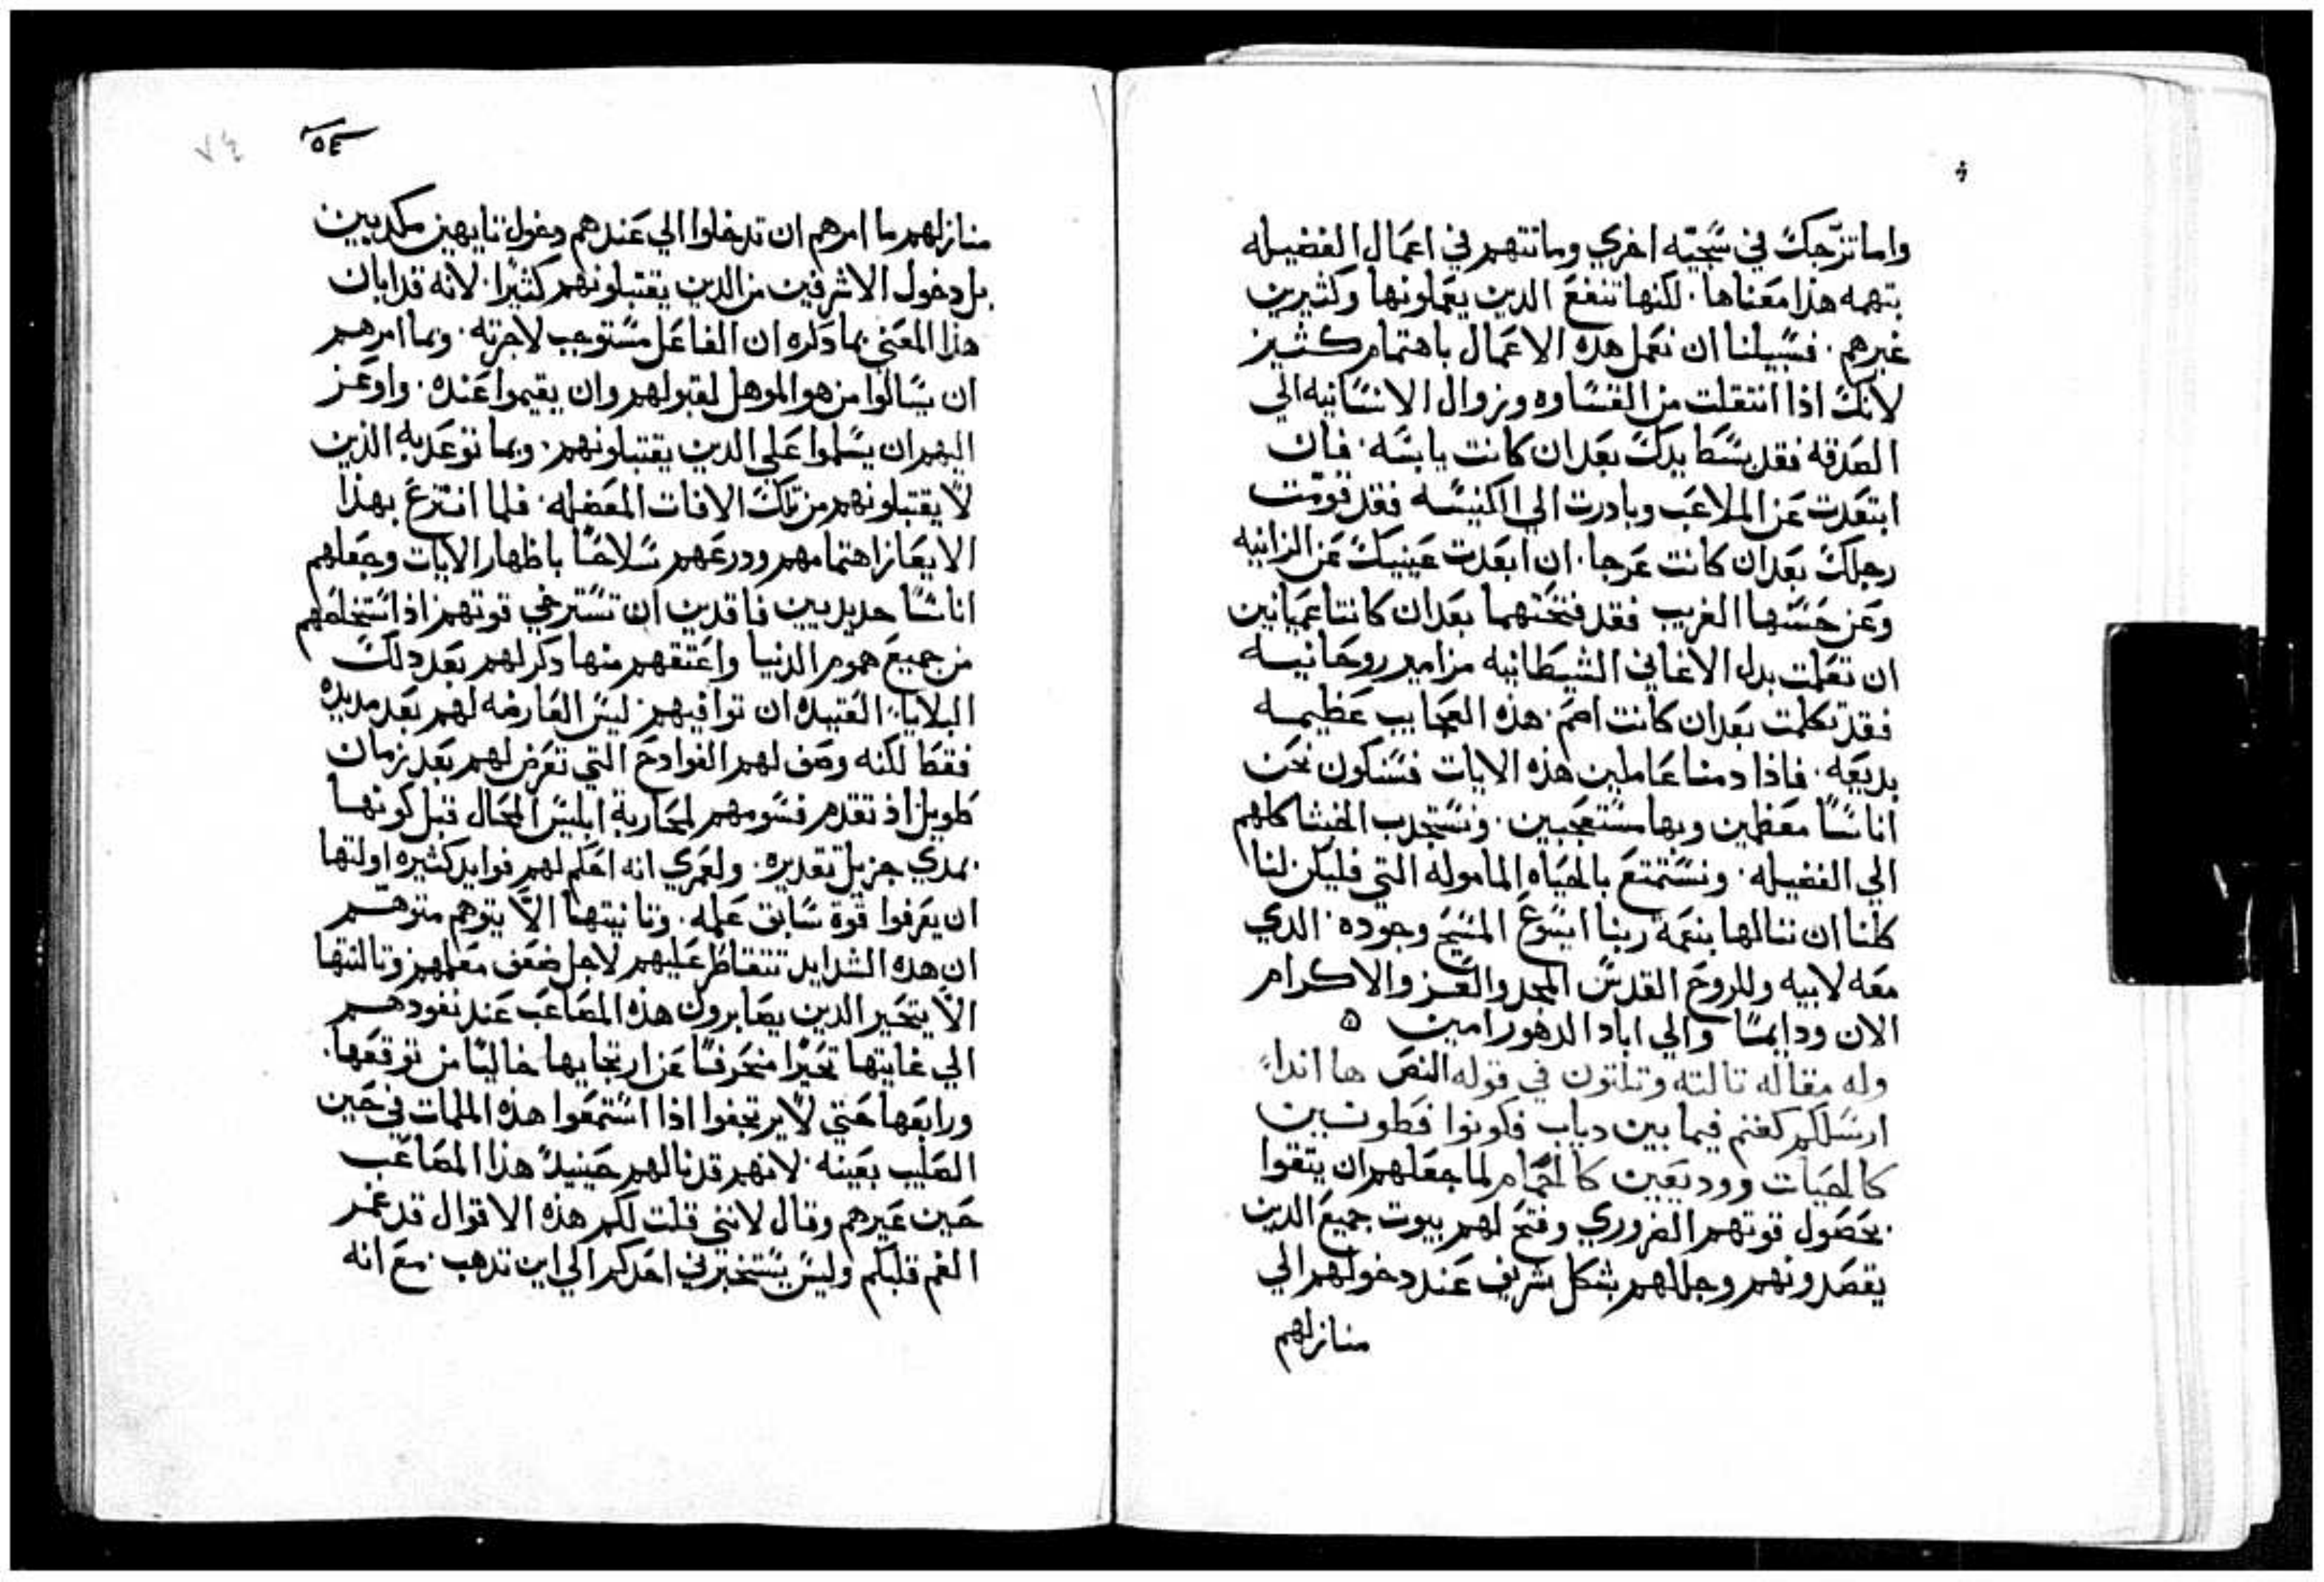 واما تزّجك في سَجيّه اخري وما تتهم في اعمال الفضيله
بتهمه هذا معناها. لكنها تنفع الدين يعملونها وكثيرين
غيرهم. فسبيلنا ان نعمل هده الاعمال باهتمام كثيز
لانك اذا انتقلت من القساوه وزوال الانسانيه الي
الصدقه فقد بسط يدك بعد ان كانت يابسه. فان
ابتعدت عن الملاعب وبادرت الي الكنيسه فقد قومت
رجلك بعد ان كانت عرجا. ان ابعدت عينيك عن الزانيه
وعن حسنها الغريب فقد فتحتهما بعد ان كانتا عميانين
ان تعلمت بدل الاغاني الشيطانيه مزامير روحانيه
فقد تكلمت بعد ان كانت اصم. هذه العجايب عظيمه
بديعه. فاذا دمنا عاملين هذه الايات فسنكون نحن
اناسًا معظمين وبها مستعجبين. ونستجدب الخبثا كلهم
الي الفضيله. ونستمتع بالحياه الماموله التي فليكن لنا
كلنا ان ننالها بنعمة ربنا ايسوع المسيح وجوده. الدي
معه لابيه وللروح القدس المجد والعز والاكرام
الان ودايمًا والي اباد الدهور امين ه
وله مقاله تالته وتلتون في قوله النص ها اندا
ارسلكم كغنم فيما بين دياب فكونوا فطونين
كالحيات ووديعين كالحمام لما جعلهم ان يتقوا
بحصول قوتهم الضروري وفتح لهم بيوت جميع الدين
يقصدونهم وجملهم بشكل شريف عند دخولهم الي
منازلهم
٥٤
٧٤
منازلهم ما امرهم ان تدخلوا الي عندهم دخول تايهين مكديين
بل دخول الاشرفين من الدين يقتبلونهم كثيرًا. لانه قد ابان
هذا المعني بما دكره ان الفاعل مستوجب لاجرته. وبما امرهم
ان يسالوا من هو الموهل لقبولهم وان يقيموا عنده. واوعز
اليهم ان يسلموا علي الدين يقتبلونهم. وبما توعد به الذين
لا يقتبلونهم من تلك الافات المعضله. فلما انتزع بهذا
الايعاز اهتمامهم ودرعهم سلاحًا باظهار الايات وجعلهم
اناسًا حديديين فاقدين ان تسترخي قوتهم اذ استخلصهم
من جميع هموم الدنيا واعتقهم منها دكر لهم بعد دلك
البلايا العتيده ان توافيهم. ليس العارضه لهم بعد مديده
فقط لكنه وصف لهم الفوادح التي تعرض لهم بعد زمان
طويل اذ تقدم فسومهم لمحاربة ابليس المحال قبل كونها
بمدي جزيل تقديره. ولعمري انه اعلم لهم فوايد كثيره اولتها
ان يعرفوا قوة سابق علمه. وتانيتها الّا يتوهم متوهم
ان هده الشدايد تتقاطر عليهم لاجل ضعف معلمهم وتالتتها
الّا يتحير الدين يصابرون هذه المصاعب عند نفودهم
الي غايتها تحيّرا منحرفًا عن ارتجايها خاليًا من توقعها.
ورابعها حتي لا يرتجفوا اذا استمعوا هذه الملمات في حين
الصليب بعينه. لانهم قد نالهم حينيد هذا المصاعب
حين عيرهم وقال لانني قلت لكم هذه الاقوال قد غمر
الغم قلبكم وليس يستخبرني احدكم الي اين تدهب. مع انه